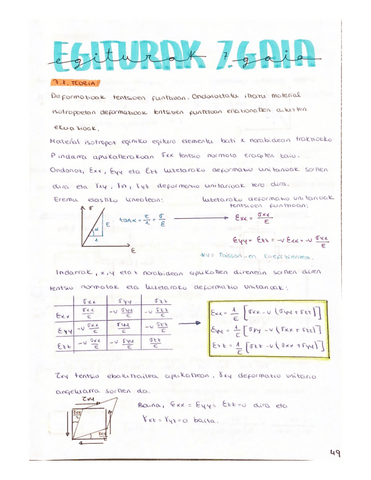 EGITURAK 7.GAIA
egiturak 7.gaia
7.1. TEORIA
Deformazioak tentsioen funtzioan. Ondorengo
isotropoetan deformazioak tentsioen funtzioan
ekuazioak.
Material isotropo egindako elementu bati x norabidean trakzioko
P indarra aplikatzerakoan σxx tentsio normala eragiten zaio.
Ondorioz, εxx, εyy eta εzz luzetarako deformazio unitarioak sortzen
dira eta γxy, γyz deformazio unitarioak zero dira.
Eremu elastiko linealean: luzetarako deformazio unitarioak
tentsioen funtzioan:
tan α = σ/ε = E
εxx = σxx/E
εyy = εzz = -ν εxx = -ν σxx/E
ν = Poisson-en koefizientea.
Indarrak, x, y eta z norabidean aplikatzen direnean sortzen diren
tentsio normalak eta luzetarako deformazio unitarioak:
σxx σyy σzz
εxx σxx/E -ν σyy/E -ν σzz/E
εyy -ν σxx/E σyy/E -ν σzz/E
εzz -ν σxx/E -ν σyy/E σzz/E
εxx = 1/E [σxx - ν (σyy + σzz)]
εyy = 1/E [σyy - ν (σxx + σzz)]
εzz = 1/E [σzz - ν (σxx + σyy)]
τxy tentsio ebakitzailea aplikatzean, γxy deformazio unitario
angeluarra sortzen da.
τxy
Baina, εxx = εyy = εzz = 0 dira eta
γxz = γyz = 0 baita.
49